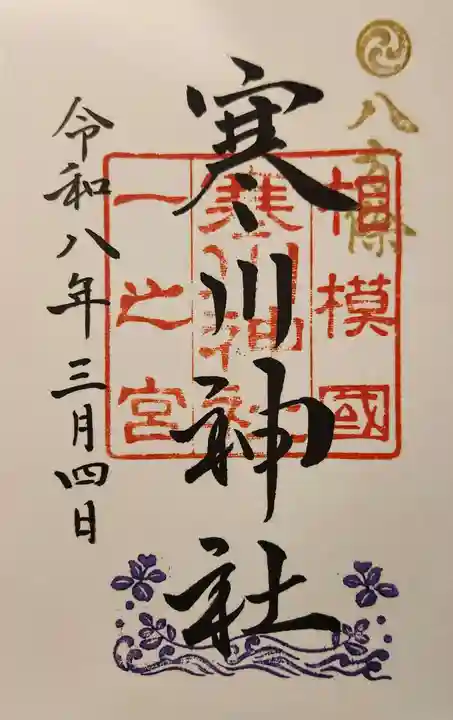 八方除
相模國
寒川神社
一之宮
寒川神社
令和八年三月四日